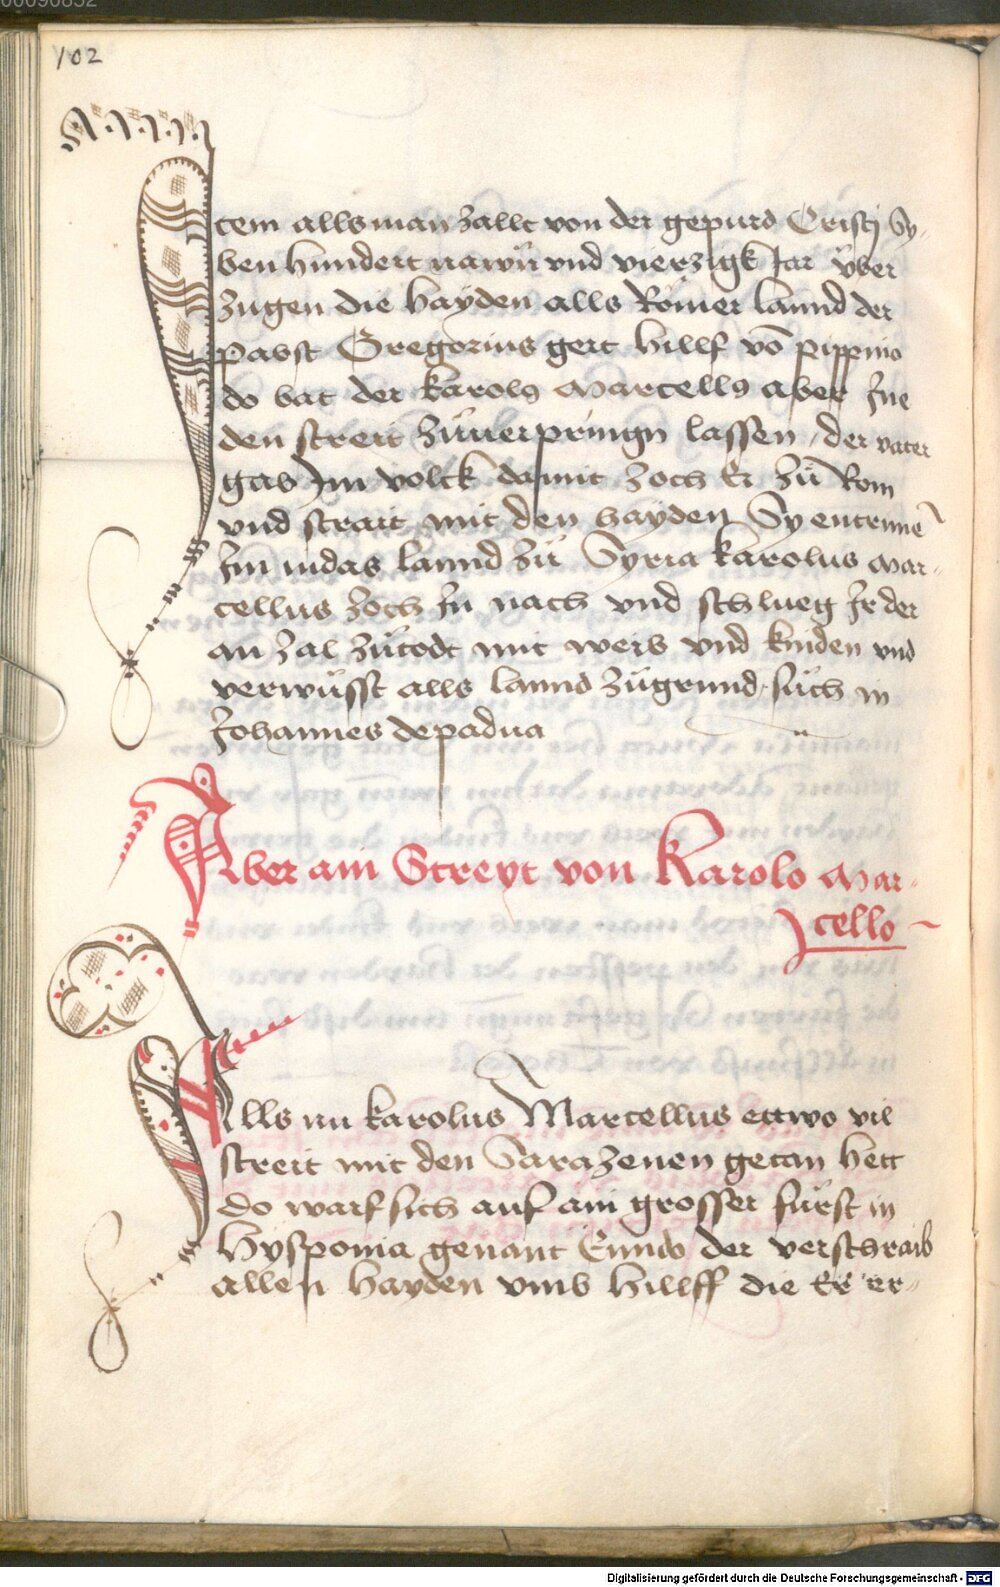 102
Item alls man zallt von der gepurd Cristj Sy-
ben hundert nawn vnd vierzigk Jar vber
zugen die hayden alls Römer lannd der
Pabst Gregorius gert hillf võ pippino
do bat der karolus Marcellus aber Jne
den streit zuuerpringn lassen, der vater
gab Jm volck damit zoch Er zu Rom
vnd strait mit den hayden Sy entrinnẽ
Jm in das lannd zu Syria karolus Mar-
cellus zoch Jn nach vnd schlueg Jr der
an zal zutodt mit weib vnd kinden vnd
verwusst alls lannd zugrund such in
Johannes de padua
Aber ain Streyt von Karolo Mar-
cello
Alls nu karolus Marcellus ettwo vil
streit mit den Sarazenen getan hett
do warf sich auf ain grosser fürst in
Hysponia genant Eundo der verschraib
allen hayden vmb hillff die Er er-
Digitalisierung gefördert durch die Deutsche Forschungsgemeinschaft - DFG